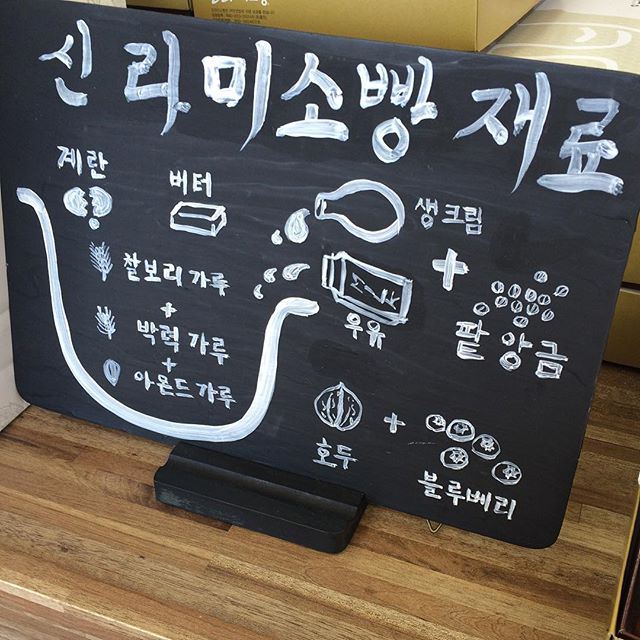 신라미소빵 재료
계란
버터
생크림
찰보리 가루
+
우유
+
박력 가루
팥 앙금
+
아몬드 가루
호두
+
블루베리